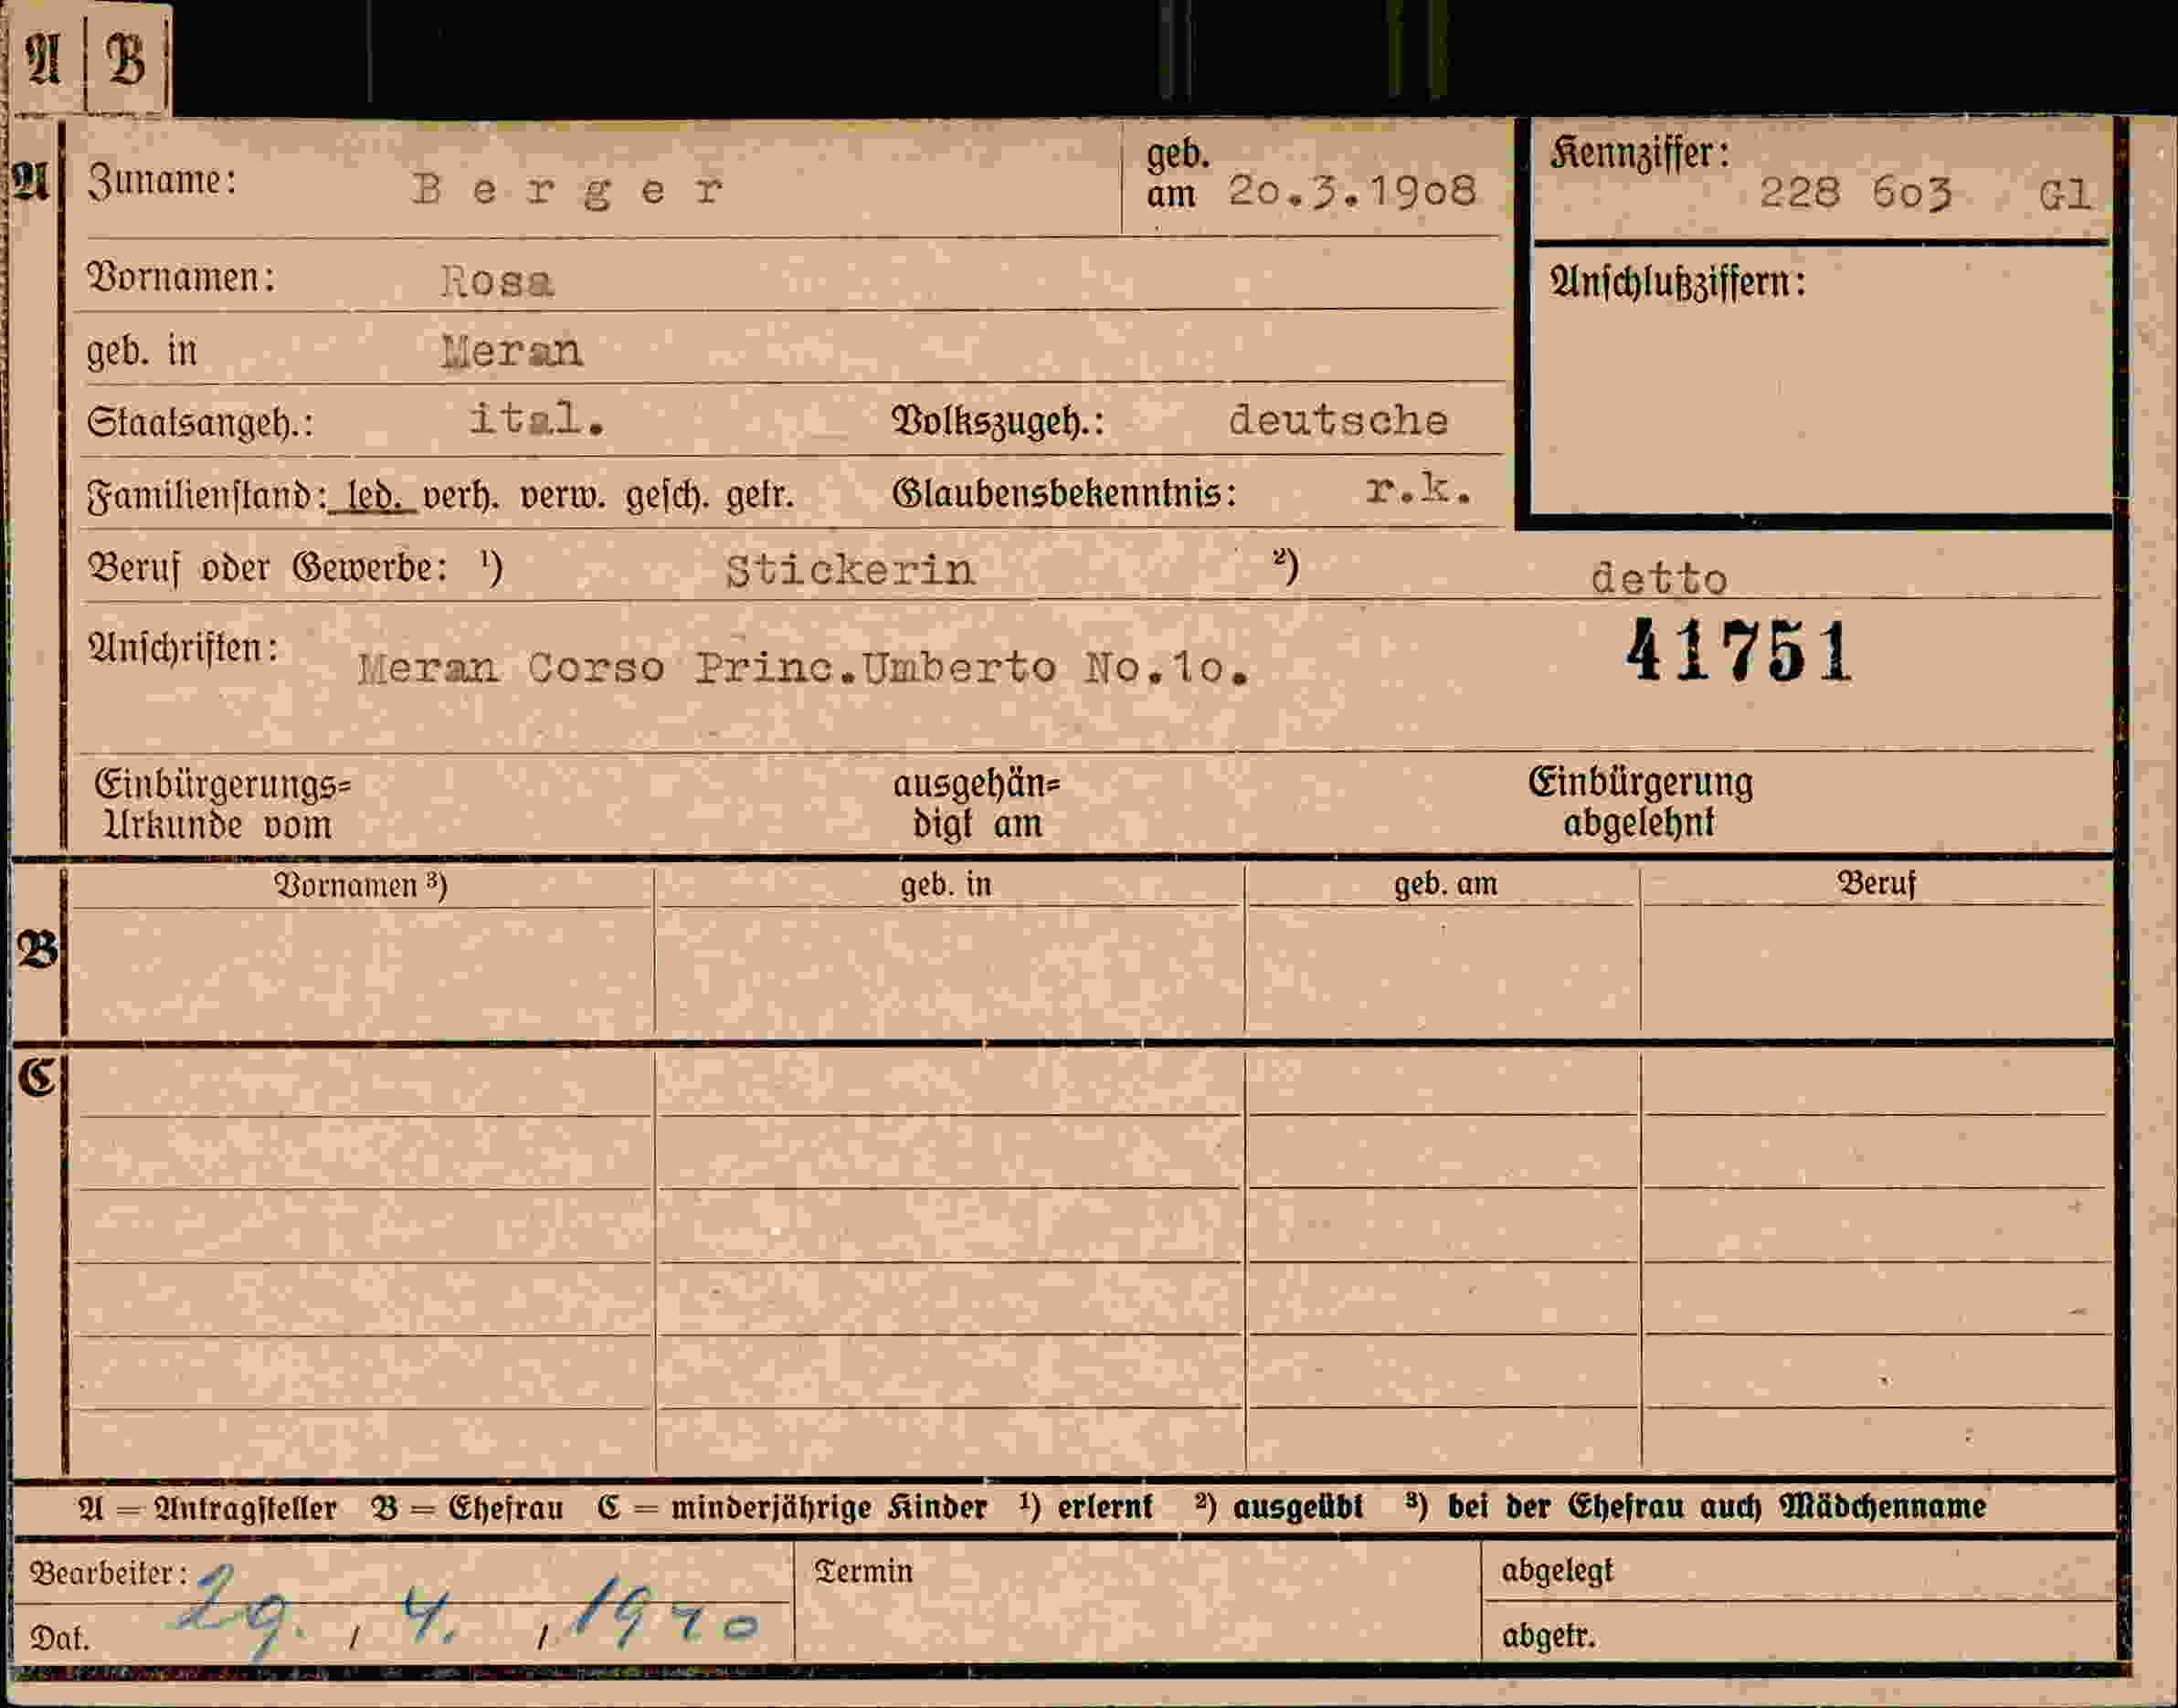 A B
A Zuname: Berger geb. am 20.3.1908 Kennziffer: 228 603 Gl
Vornamen: Rosa Anschlußziffern:
geb. in Meran
Staatsangeh.: ital. Volkszugeh.: deutsche
Familienstand: led. verh. verw. gesch. getr. Glaubensbekenntnis: r.k.
Beruf oder Gewerbe: ¹) Stickerin ²) detto
Anschriften: Meran Corso Princ.Umberto No.10. 41751
Einbürgerungs= ausgehän= Einbürgerung
Urkunde vom digt am abgelehnt
Vornamen ³) geb. in geb. am Beruf
B
C
A = Antragsteller B = Ehefrau C = minderjährige Kinder ¹) erlernt ²) ausgeübt ³) bei der Ehefrau auch Mädchenname
Bearbeiter: Termin abgelegt
Dat. 29. / 4. / 1940 abgetr.